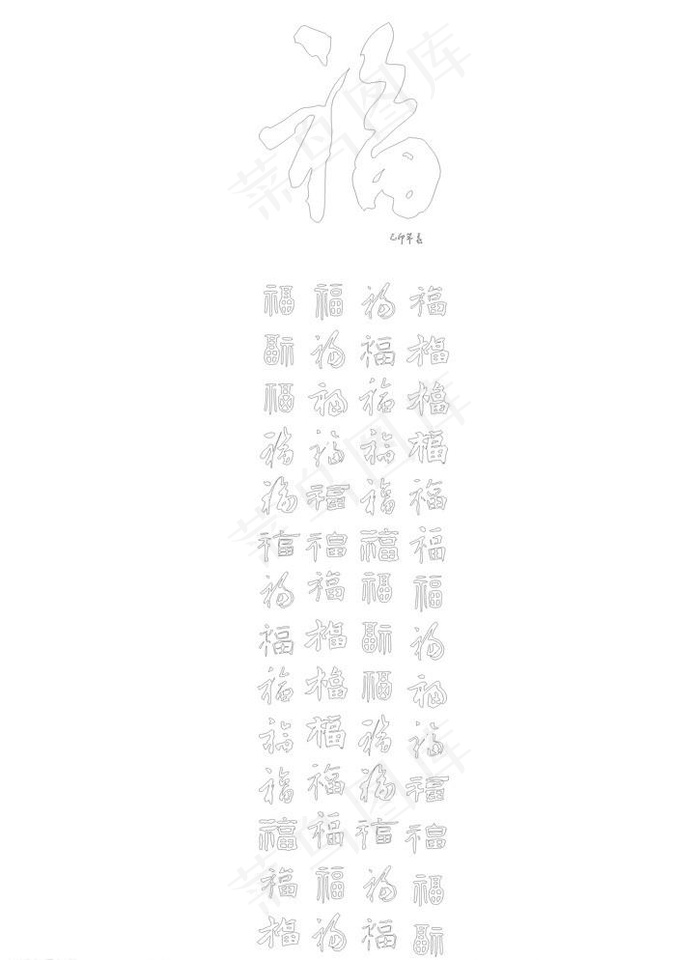 福
己卯年春
福 福 福 福
福 福 福 福
福 福 福 福
福 福 福 福
福 福 福 福
福 福 福 福
福 福 福 福
福 福 福 福
福 福 福 福
福 福 福 福
福 福 福 福
福 福 福 福
福 福 福 福
福 福 福 福
菜鸟图库
菜鸟图库
菜鸟图库